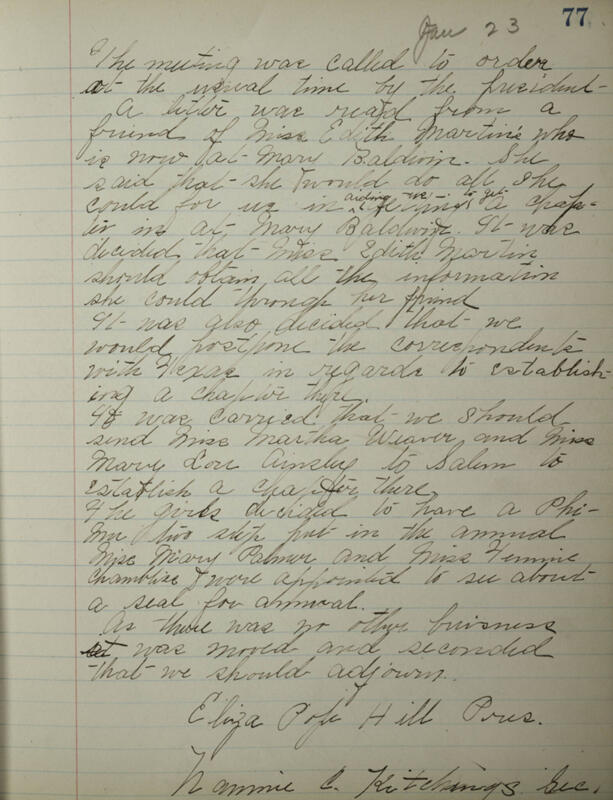 Jan 23 77
The meeting was called to order
at the usual time by the president-
A letter was read from a
friend of Miss Edith Martin's who
is now at Mary Baldwin. She
said that she would do all she
could for us in aiding us to get a chap-
ter in at Mary Baldwin. It was
decided that Miss Edith Martin
should obtain all the information
she could through her friend
It was also decided that we
would postpone the correspondents
with Texas in regards to establish-
ing a chapter there.
It was carried that we should
send Miss Martha Weaver and Miss
Mary Lou Ainsley to Salem to
establish a chapter there
The girls decided to have a Phi-
Mu two step put in the annual
Miss Mary Palmer and Miss Femmie
Chambliss were appointed to see about
a seal for annual.
As there was no other buisness
it was moved and seconded
that we should adjourn.
Eliza Pope Hill Pres.
Nannie C. Kitchings Sec.